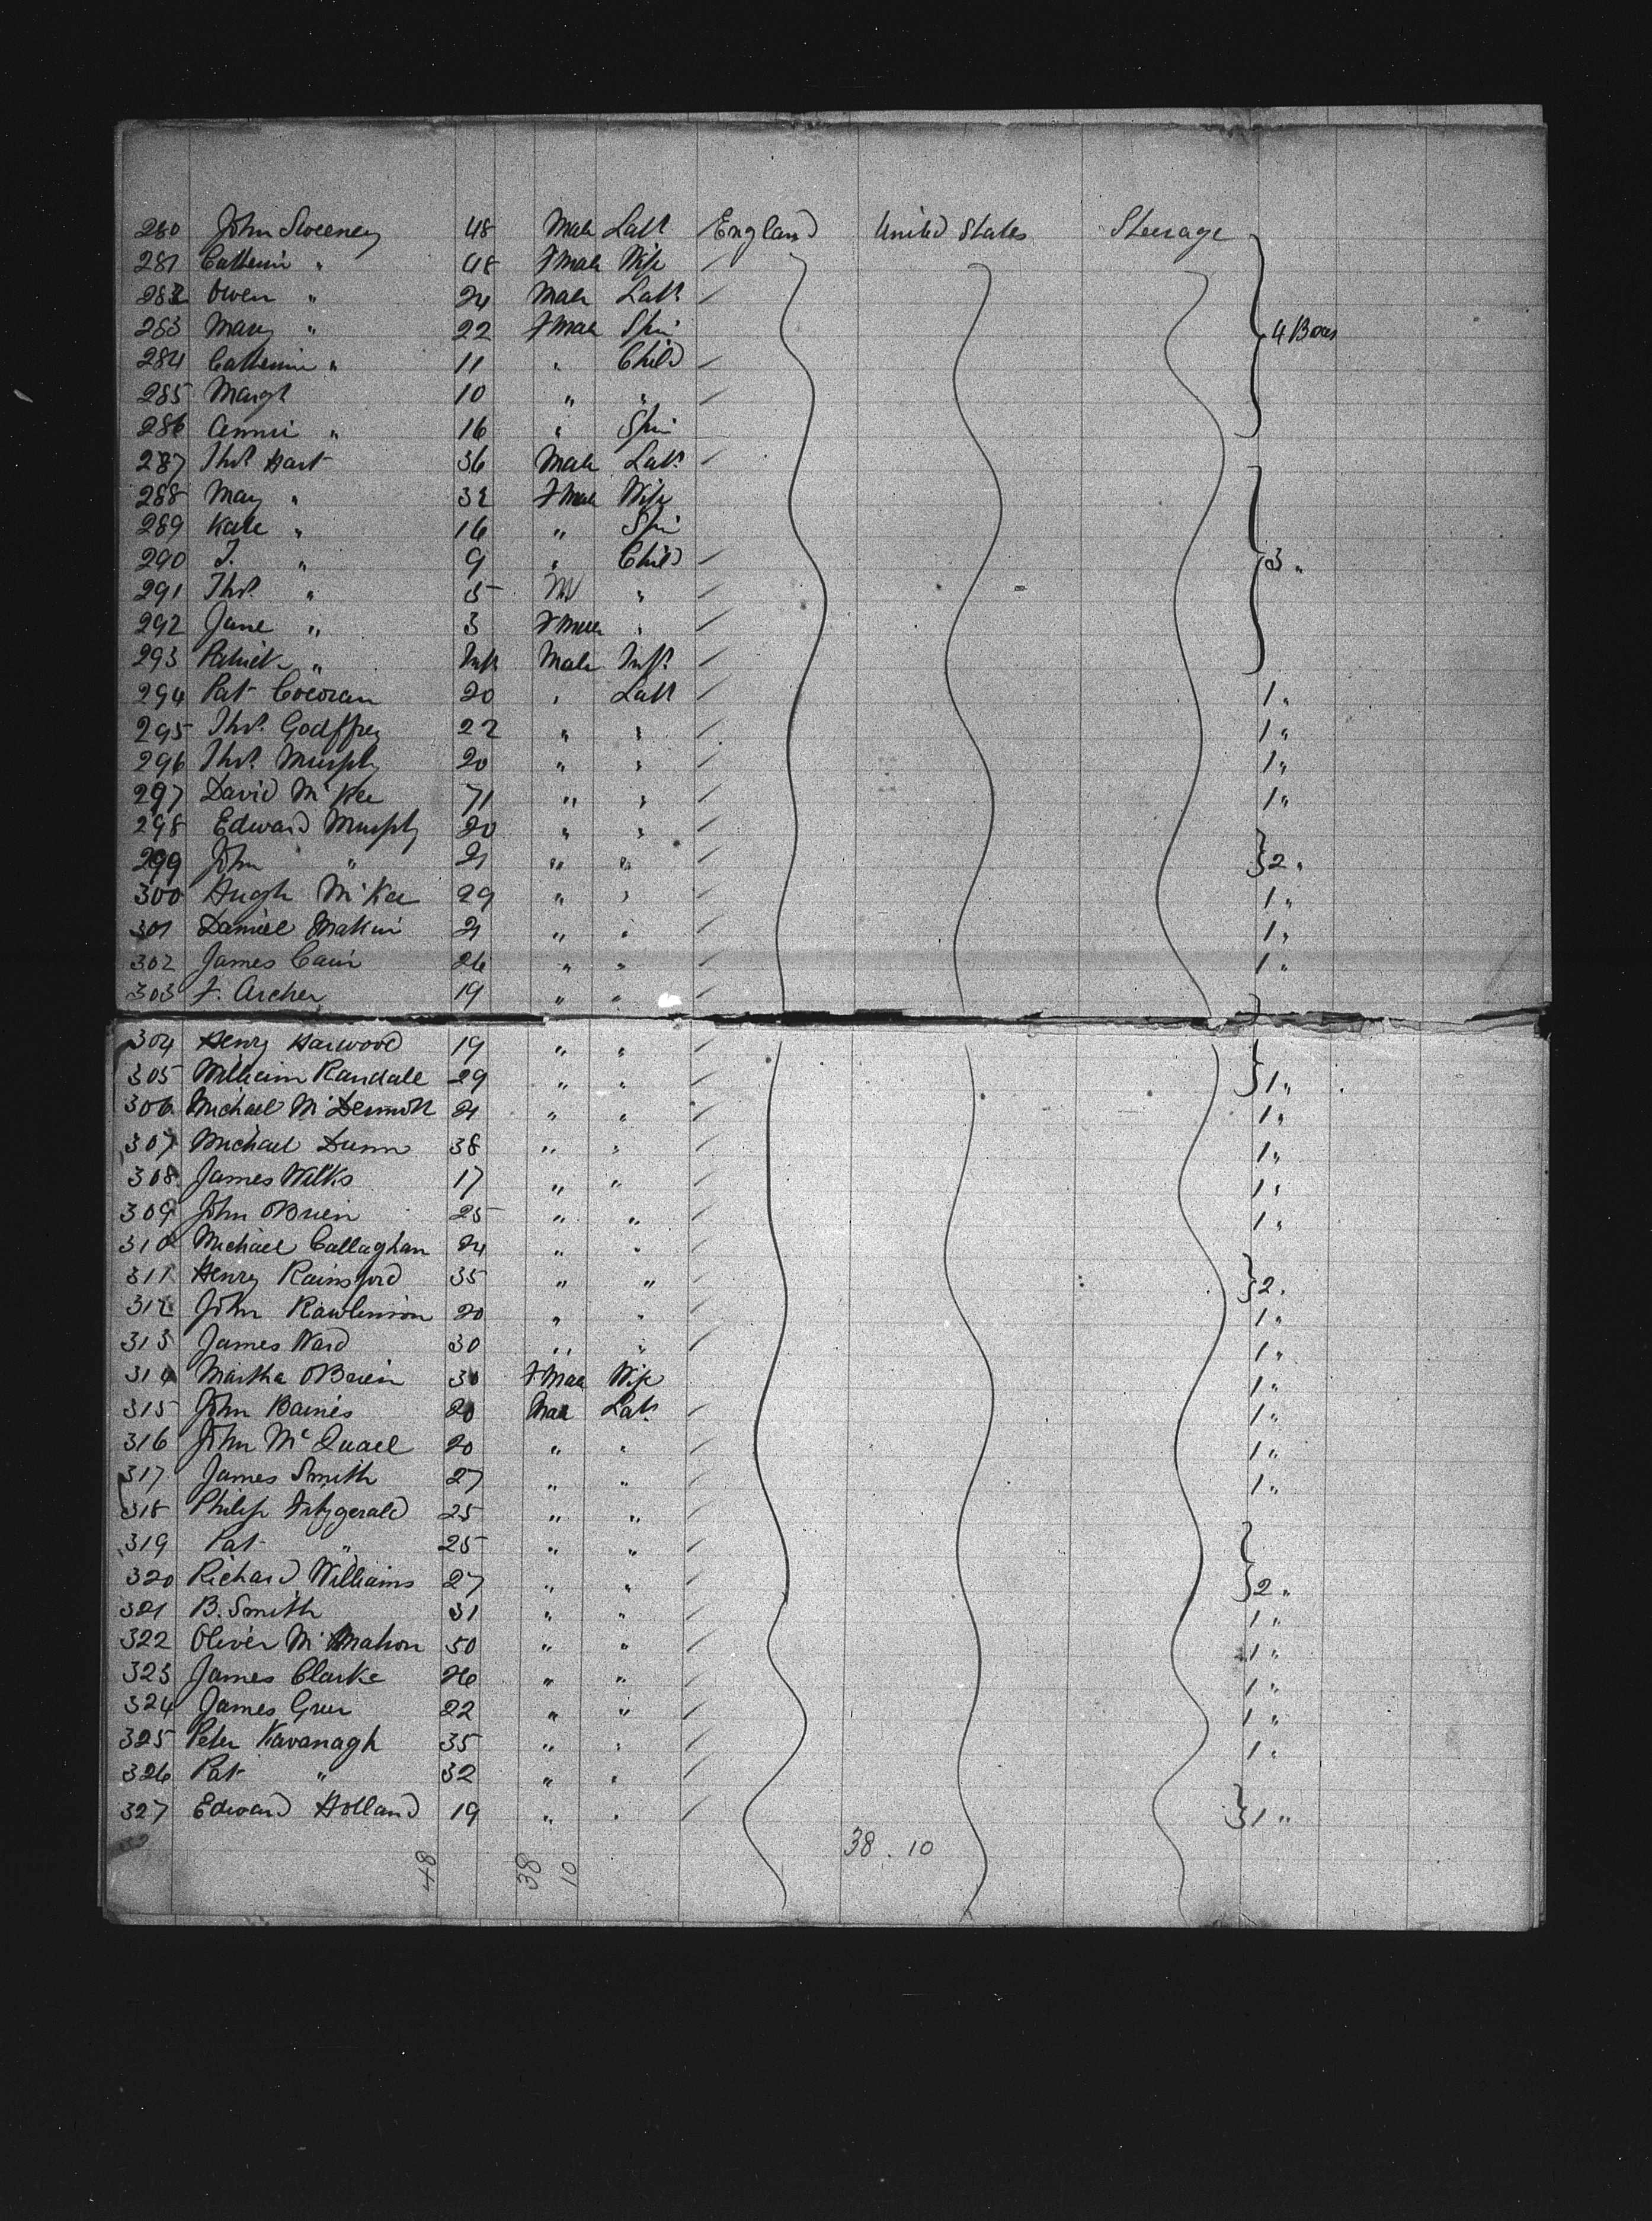 280 John Sweeney 48 Male Labr England United States Steerage
281 Catherin " 48 Fmale Wife
282 Owen " 24 Male Labr
283 Mary " 22 Fmale Spin 4 Boxes
284 Catherin " 11 " Child
285 Margt 10 " "
286 Annie " 16 " Spin
287 Thos Hart 36 Male Labr
288 Mary " 32 Fmale Wife
289 Kate " 16 " Spin
290 J. " 9 " Child 3 "
291 Thos " 5 M "
292 Jane " 3 Fmale "
293 Patrick " Inft Male Inft
294 Pat Cocoran 20 " Labr 1 "
295 Thos Godffrey 22 " " 1 "
296 Thos Murphy 20 " " 1 "
297 David McKee 71 " " 1 "
298 Edward Murphy 20 " "
299 John " 21 " " 2 "
300 Hugh McKee 29 " " 1 "
301 Daniel 21 " " 1 "
302 James Cain 26 " " 1 "
303 J. Archer 19 " "
304 Henry Harwood 19 " "
305 William Randall 29 " " 1 "
306 Michael McDermott 21 " " 1 "
307 Michael Dunn 38 " " 1 "
308 James Wilks 17 " " 1 "
309 John OBrien 25 " " 1 "
310 Michael Callaghan 24 " "
311 Henry Rainsford 35 " " 2 "
312 John Rawlinson 20 " " 1 "
313 James Ward 30 " " 1 "
314 Martha OBrien 30 Fmale Wife 1 "
315 John Baines 20 Male Labr 1 "
316 John McQuael 20 " " 1 "
317 James Smith 27 " " 1 "
318 Philip Fitzgerald 25 " "
319 Pat " 25 " "
320 Richard Williams 27 " " 2 "
321 B. Smith 31 " " 1 "
322 Oliver McMahon 50 " " 1 "
323 James Clarke 26 " " 1 "
324 James Greer 22 " " 1 "
325 Peter Kavanagh 35 " " 1 "
326 Pat " 32 " "
327 Edward Holland 19 " " 1 "
38 . 10
48
38
10